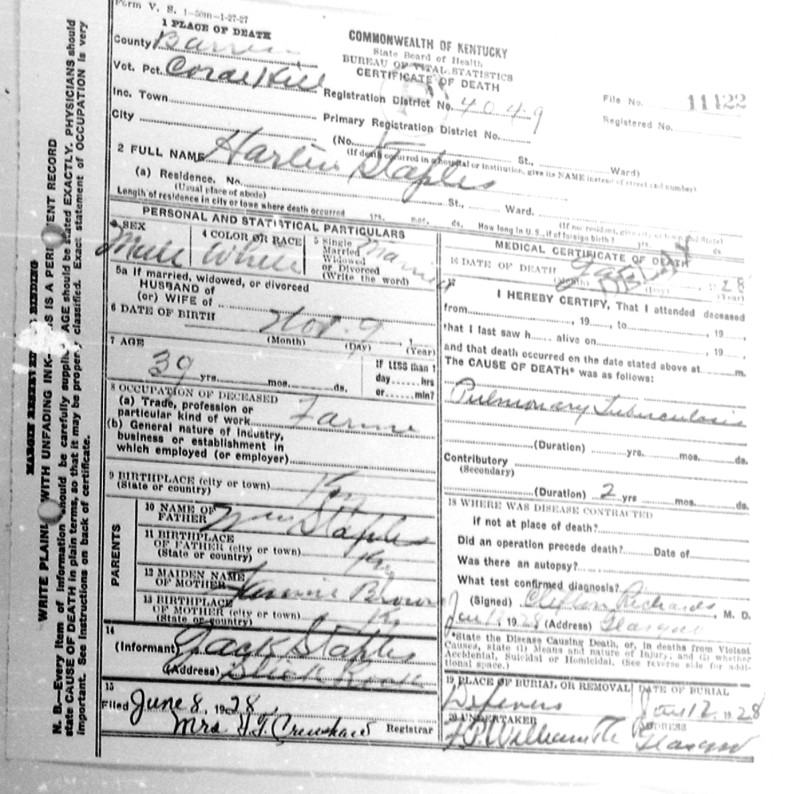 Form V. S. 1-50m-1-27-27
1 PLACE OF DEATH
County Barren
Vot. Pct. Coral Hill
Inc. Town
City
COMMONWEALTH OF KENTUCKY
State Board of Health
BUREAU OF VITAL STATISTICS
CERTIFICATE OF DEATH
Registration District No. 4049
Primary Registration District No.
File No. 11122
Registered No.
(No. St., Ward)
(If death occurred in a hospital or institution, give its NAME instead of street and number)
2 FULL NAME Staples
(a) Residence. No. St., Ward.
(Usual place of abode)
Length of residence in city or town where death occurred yrs. mos. ds. How long in U.S., if of foreign birth? yrs. ds.
PERSONAL AND STATISTICAL PARTICULARS
3 SEX
Male
4 COLOR OR RACE
White
5 Single
Married
Widowed
or Divorced
(Write the word)
Married
5a If married, widowed, or divorced
HUSBAND of
(or) WIFE of
6 DATE OF BIRTH Nov. 9, 1
(Month) (Day) (Year)
7 AGE
39 yrs. mos. ds.
If LESS than 1
day hrs
or min?
8 OCCUPATION OF DECEASED
(a) Trade, profession or
particular kind of work
(b) General nature of industry,
business or establishment in
which employed (or employer)
9 BIRTHPLACE (city or town)
(State or country) Ky
PARENTS
10 NAME OF
FATHER Wm Staples
11 BIRTHPLACE
OF FATHER (city or town)
(State or country) Ky
12 MAIDEN NAME
OF MOTHER Brown
13 BIRTHPLACE
OF MOTHER (city or town)
(State or country) Ky
14
(Informant) Jack Staples
(Address) Slick Rock
15
Filed June 8, 1928,
Mrs. Crenshaw Registrar
MEDICAL CERTIFICATE OF DEATH
16 DATE OF DEATH 28
(Month) (Day) (Year)
DELAY
17 I HEREBY CERTIFY, That I attended deceased
from , 19 , to , 19 ,
that I last saw h alive on , 19 ,
and that death occurred on the date stated above at m.
The CAUSE OF DEATH* was as follows:
Pulmonary Tuberculosis
(Duration) yrs. mos. ds.
Contributory
(Secondary)
(Duration) 2 yrs mos. ds.
18 WHERE WAS DISEASE CONTRACTED
if not at place of death?
Did an operation precede death? Date of
Was there an autopsy?
What test confirmed diagnosis?
(Signed) Clifton Richards, M. D.
1928 (Address) Glasgow
*State the Disease Causing Death, or, in deaths from Violent
Causes, state (1) Means and nature of Injury, and (2) whether
Accidental, Suicidal or Homicidal. (See reverse side for addi-
tional space.)
19 PLACE OF BURIAL OR REMOVAL
Defevers
DATE OF BURIAL
12 1928
20 UNDERTAKER
ADDRESS
Glasgow
MARGIN RESERVED FOR BINDING
WRITE PLAINLY WITH UNFADING INK-THIS IS A PERMANENT RECORD
N. B.-Every item of information should be carefully supplied. AGE should be stated EXACTLY. PHYSICIANS should
state CAUSE OF DEATH in plain terms, so that it may be properly classified. Exact statement of OCCUPATION is very
important. See instructions on back of certificate.